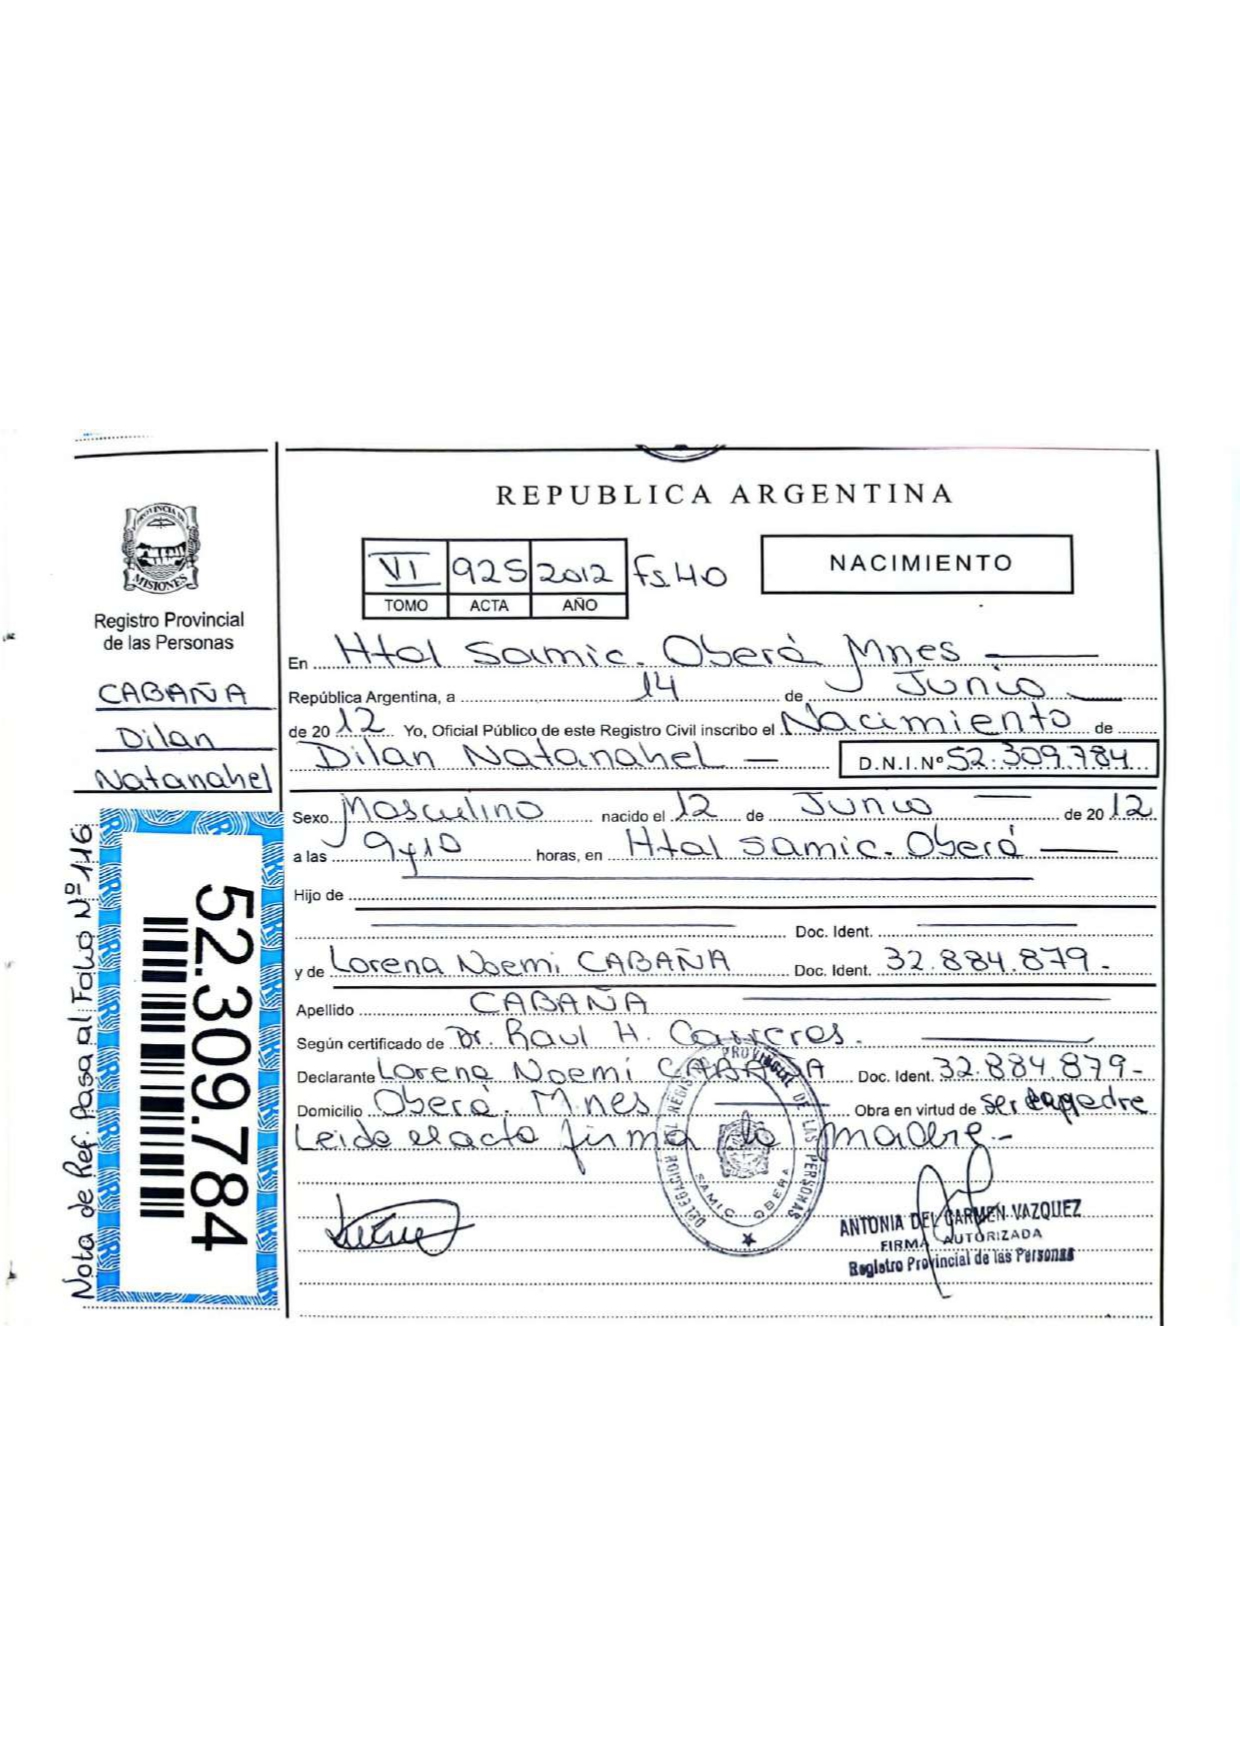 REPUBLICA ARGENTINA
PROVINCIA DE
MISIONES
Registro Provincial
de las Personas
CABAÑA
Dilan
Natanahel
Nota de Ref. Pasa al Folio Nº 116
52.309.784
VI 925 2012 Fs 40
TOMO ACTA AÑO
NACIMIENTO
En Htal Samic. Oberá Mnes
República Argentina, a 14 de Junio
de 20 12 Yo, Oficial Público de este Registro Civil inscribo el Nacimiento de
Dilan Natanahel D.N.I.Nº 52.309.784
Sexo Masculino nacido el 12 de Junio de 20 12
a las 9y10 horas, en Htal Samic. Oberá
Hijo de
Doc. Ident.
y de Lorena Noemi CABAÑA Doc. Ident. 32.884.879.-
Apellido CABAÑA
Según certificado de Dr. Raul H. Carreros.
Declarante Lorena Noemi CABAÑA Doc. Ident. 32.884.879-
Domicilio Oberá. Mnes Obra en virtud de ser
Leida el acta firma la madre.-
DELEGACION REGISTRO PROVINCIAL DE LAS PERSONAS
SAMIC OBERA
ANTONIA DEL CARMEN VAZQUEZ
FIRMA AUTORIZADA
Registro Provincial de las Personas